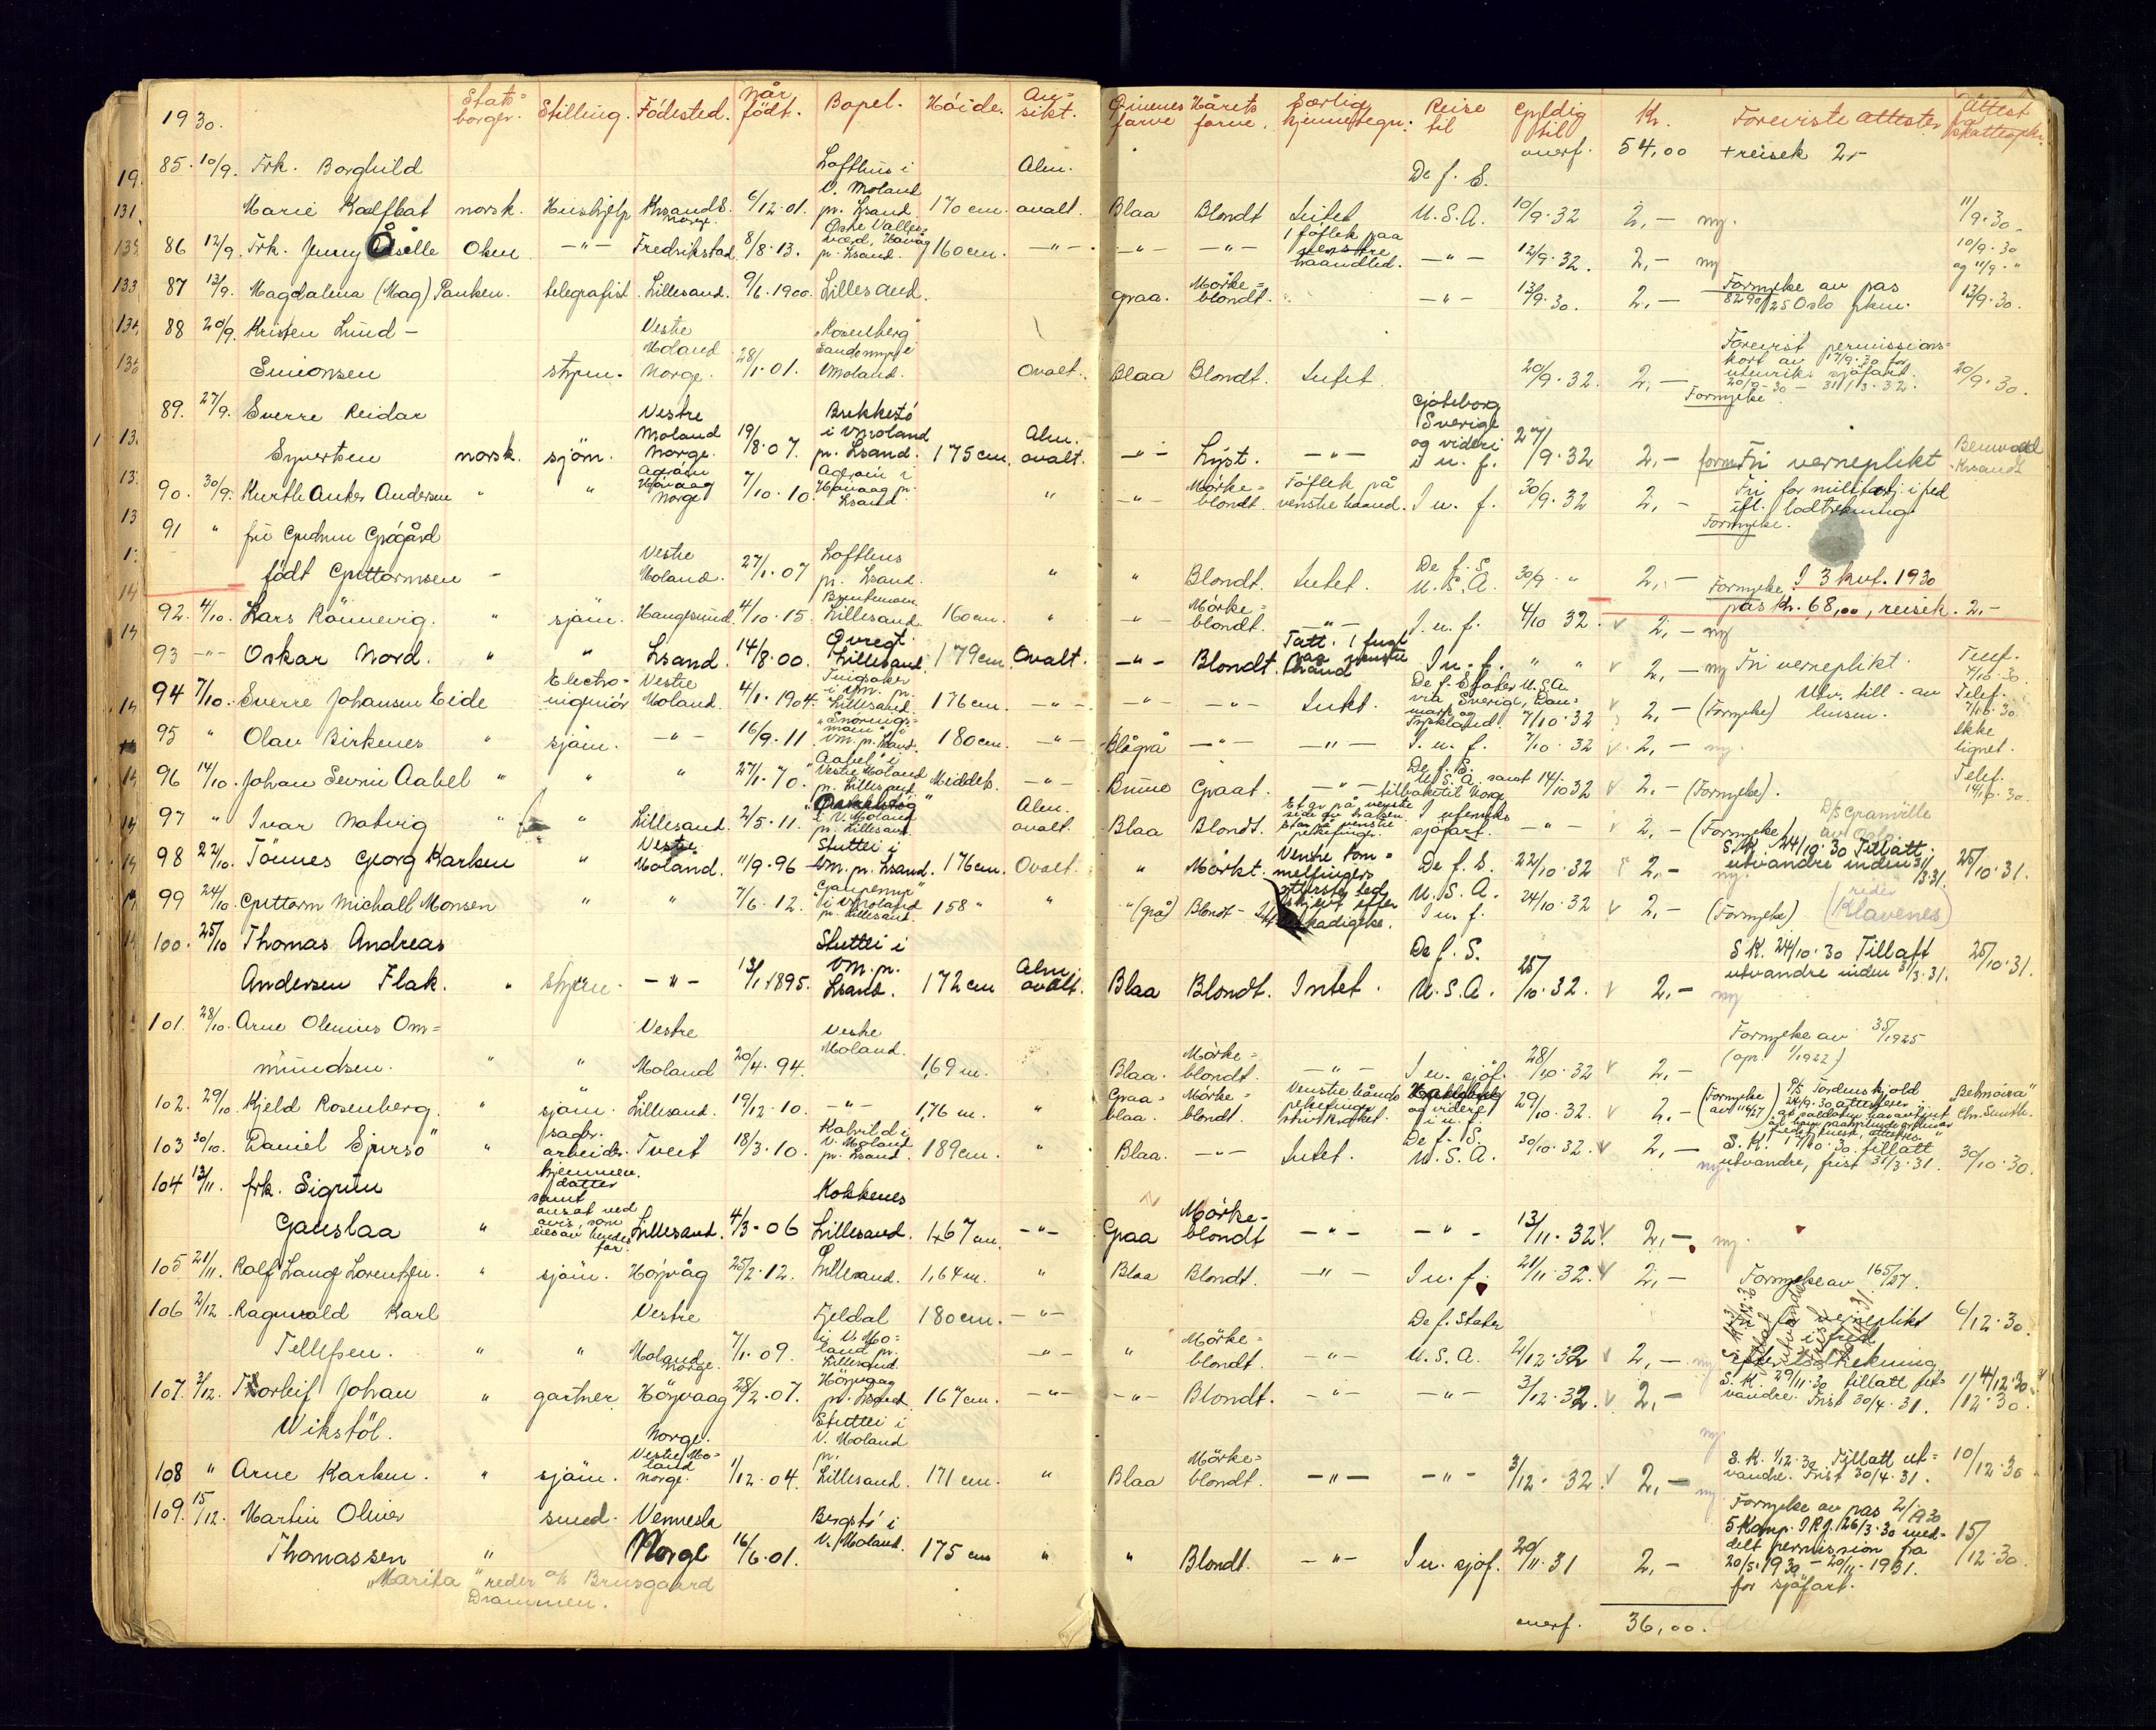 1930. Stats= borger. Stilling. Födested. Når födt. Bopel. Höide. An= sikt. Öinenes farve Hårets farve. Særlige kjennetegn: Reise til Gyldig til Kr. Foreviste attester Attest fra skattepkr.
overf. 54,00 + reisek 2,-
85. 10/9. Frk. Borghild Lofthus i Alm. De f. S.
Marie Kalfhat norsk. Hushjelp Krsands. Norge. 6/12.01. V. Moland pr. Lsand. 170 cm. ovalt. Blaa Blondt Intet U.S.A. 10/9.32 2,- ny. 11/9.30.
86 12/9. Frk. Jenny Åselle Olsen -"- Fredrikstad. 8/8.13. Östre Vallesværd, Hövåg pr. Lsand. 160 cm. -"- -"- -"- 1 föflek paa venstre haandled. -"- 12/9.32. 2,- ny 10/9.30 og 11/9. "
87 13/9. Magdalena (Mag) Paulsen. telegrafist. Lillesand. 9/6.1900. Lillesand. graa. Mörke= blondt. -"- 13/9.30. 2,- Fornyelse av pas 8290/25 Oslo pkm. 13/9.30.
88 20/9. Kristen Lund - Vestre "Rosenberg"
Simonsen styrm. Moland Norge. 28/1.01. Sandsmyr i Vmoland. Ovalt. Blaa Blondt. Intet. 20/9.32. 2,- Forevist permissions= kort av 17/9.30 for utenriks sjöfart. 20/9-30 - 31/3.32. Fornyelse. 20/9.30.
89. 27/9. Sverre Reidar Vestre Brekkestö Göteborg
Syvertsen norsk. sjöm. Moland Norge. 19/8.07. i Vmoland pr. Lsand. 175 cm. Alm. ovalt. -"- Lyst. -"- Sverige og videre i u. f. 27/9.32 2,- Fri verneplikt
90. 30/9. Kurth Anker Andersen " " Agröin Hövaag Norge 7/10.10. Agröin i Hövaag pr. Lsand " -"- Mörke= blondt. Föflek på venstre haand. I u. f. 30/9.32 2,- Fri for militærtj. i fred efl. lodtrekning. Fornyelse.
91 " fru Gudrun Grögård
födt Guttormsen - Vestre Moland. 27/1.07 Lofthus pr. Lsand. " " Blondt. Intet. De f. S. U.S.A. 30/9. " 2,- Fornyelse. I 3 kvt. 1930
pas Kr. 68,00, reisek. 2.-
92. 4/10. Lars Rönnevig. " sjöm. Haugesund. 4/10.15. Lillesand. 160 cm. " -"- Mörke= blondt. -"- I u. f. 4/10 32. v 2,- ny
93 -"- Oskar Nord. " " Lsand. 14/8.00. Övregt. Lillesand. 179 cm. Ovalt. -"- Blondt. Tatt. 1 fugl paa venstre haand I u. f. " " v 2,- ny Fri verneplikt. Telf. 7/10.30.
94 7/10. Sverre Johansen Eide Electro= ingeniör Vestre Moland. 4/1.1904. i Vm. pr. Lillesand. 176 cm. -"- -"- -"- Intet. De f. Stater U.S.A. via Sverige, Dan= mark og Tyskland. 7/10.32 v 2,- (Fornyelse) Utv. till. av linsm. Telef. 7/10.30
95 " Olav Birkenes " sjöm. -"- 16/9.11 Vm. pr. Lsand. 180 cm. -"- Blågrå -"- -"- I. u. f. 7/10.32 v 2,- ny. Ikke lignet.
96 14/10. Johan Severin Aabel " " " 27/1.70. "Aabel" i Vestre Moland pr. Lillesand. Middels. -"- Brune Graat. -"- De f. S. U.S.A. samt tilbake til Norge 14/10 32 v 2,- (Fornyelse). Telef. 14/10.30.
97 " Ivar Natvig " " Lillesand. 2/5.11. i V. Moland pr. Lillesand. Alm. ovalt. Blaa Blondt. Et ar på venstre side av halsen. Ar på venstre pekefinger. I utenriks sjöfart. -"- v 2,- (Fornyelse) D/S Granville av Oslo
98 22/10. Tönnes Georg Karlsen " Vestre Moland. 11/9.96 Stuttei i Vm. pr. Lsand. 176 cm. Ovalt. " Mörkt. Venstre tom= melfingers ytterste led skjevt efter beskadigelse. De f. S. U.S.A. 22/10.32 2,- ny S.K. 24/10.30 Tillatt utvandre inden 31/3.31. 25/10.31.
99 24/10. Guttorm Michall Monsen " " 7/6.12. i Vmoland pr. Lillesand. 158 " " "(grå) Blondt - I u. f. 24/10.32 v 2,- (Fornyelse) (reder Klavenes)
100. 25/10 Thomas Andreas Stuttei i De f. S.
Andersen Flak. " styrm. -"- 13/1 1895. Vm. pr. Lsand. 172 cm Alm. ovalt. Blaa Blondt. Intet. U.S.A. 25/10.32. v 2,- ny S K. 24/10.30 Tillatt utvandre inden 31/3.31. 25/10.31.
101. 28/10. Arne Olenius Om= Vestre Vestre
mundsen. " " Moland 20/4.94. Moland. 1,69 m. Blaa. Mörke= blondt. -"- I u. sjöf. 28/10.32 v 2,- Fornyelse av 35/1925 (opr. 1/1922)
102. 29/10. Kjeld Rosenberg. " sjöm. Lillesand. 19/12.10. -"- 1,76 m. " Graa= blaa. Mörke= blondt. Venstre hånds pekefinger og videre i u. f. 29/10.32. v 2,- (Fornyelse av 116/27) P/S Tordenskjold "Belmoira" Chr. Smith.
103 30/10. Daniel Spursö " sagbr. arbeider. Tveit 18/3.10. Kalvild i V. Moland pr. Lsand. 189 cm. " Blaa. -"- Intet. De f. S. U.S.A. 30/10.32. v 2,- ny. S.K. 17/10.30. tillatt utvandre, frist 31/3.31. 30/10.30.
104 13/11. frk. Sigrun hjemmev. datter Kokkenes
Gauslaa " samt ansat ved avis, som eies av hendes far. Lillesand. 4/3.06 Lillesand. 1,67 cm. -"- Graa Mörke= blondt -"- -"- 13/11.32 v. 2,- ny.
105 21/11. Rolf Lang Lorentzen. " sjöm. Höyvåg 25/2.12. Lillesand. 1,64 m. " Blaa Blondt. -"- I u. f. 21/11.32. v 2,- Fornyelse av 165/27.
106 2/12. Ragnvald Karl Vestre Fjeldal 180 cm. -"- De f. Stater
Tellefsen. " " Moland Norge. 7/1.09. i V. Mo= land pr. Lillesand. " Mörke= blondt. -"- U.S.A. 2/12.32 v 2,- ny verneplikt i fred efter lodtrekning 6/12.30.
107. 3/12. Thorleif Johan " gartner Höyvaag 28/2.07. Höyvaag pr. Lsand 167 cm. -"- -"- Blondt. -"- -"- 3/12.32. v 2,- S. K. 29/11.30 tillatt ut= vandre. Frist 30/4.31.
Vikstöl. Norge.
108 " Arne Karlsen. " sjöm. Vestre Mo= land Norge. 1/12.04. Stuttei i V. Moland pr. Lillesand. 171 cm. " Blaa Mörke= blondt. -"- -"- 3/12.32. v 2,- ny S. K. 1/12.30 Tillatt ut= vandre. Frist 30/4.31. 10/12.30
109. 15/12. Martin Oliver smed. Vennesla Bergstö i
Thomassen " Norge 16/6.01. V./Moland. 175 cm " " Blondt. -"- I u. sjöf. 20/11.31 2,- Fornyelse av pas 2/1930 5 Komp. I R 7. 126/3.30 med= delt permission fra 20/5.1930 - 20/11-1931. for sjöfart. 15/12.30.
"Marita" reder a/s Brusgaard
Drammen.
overf. 36,00.